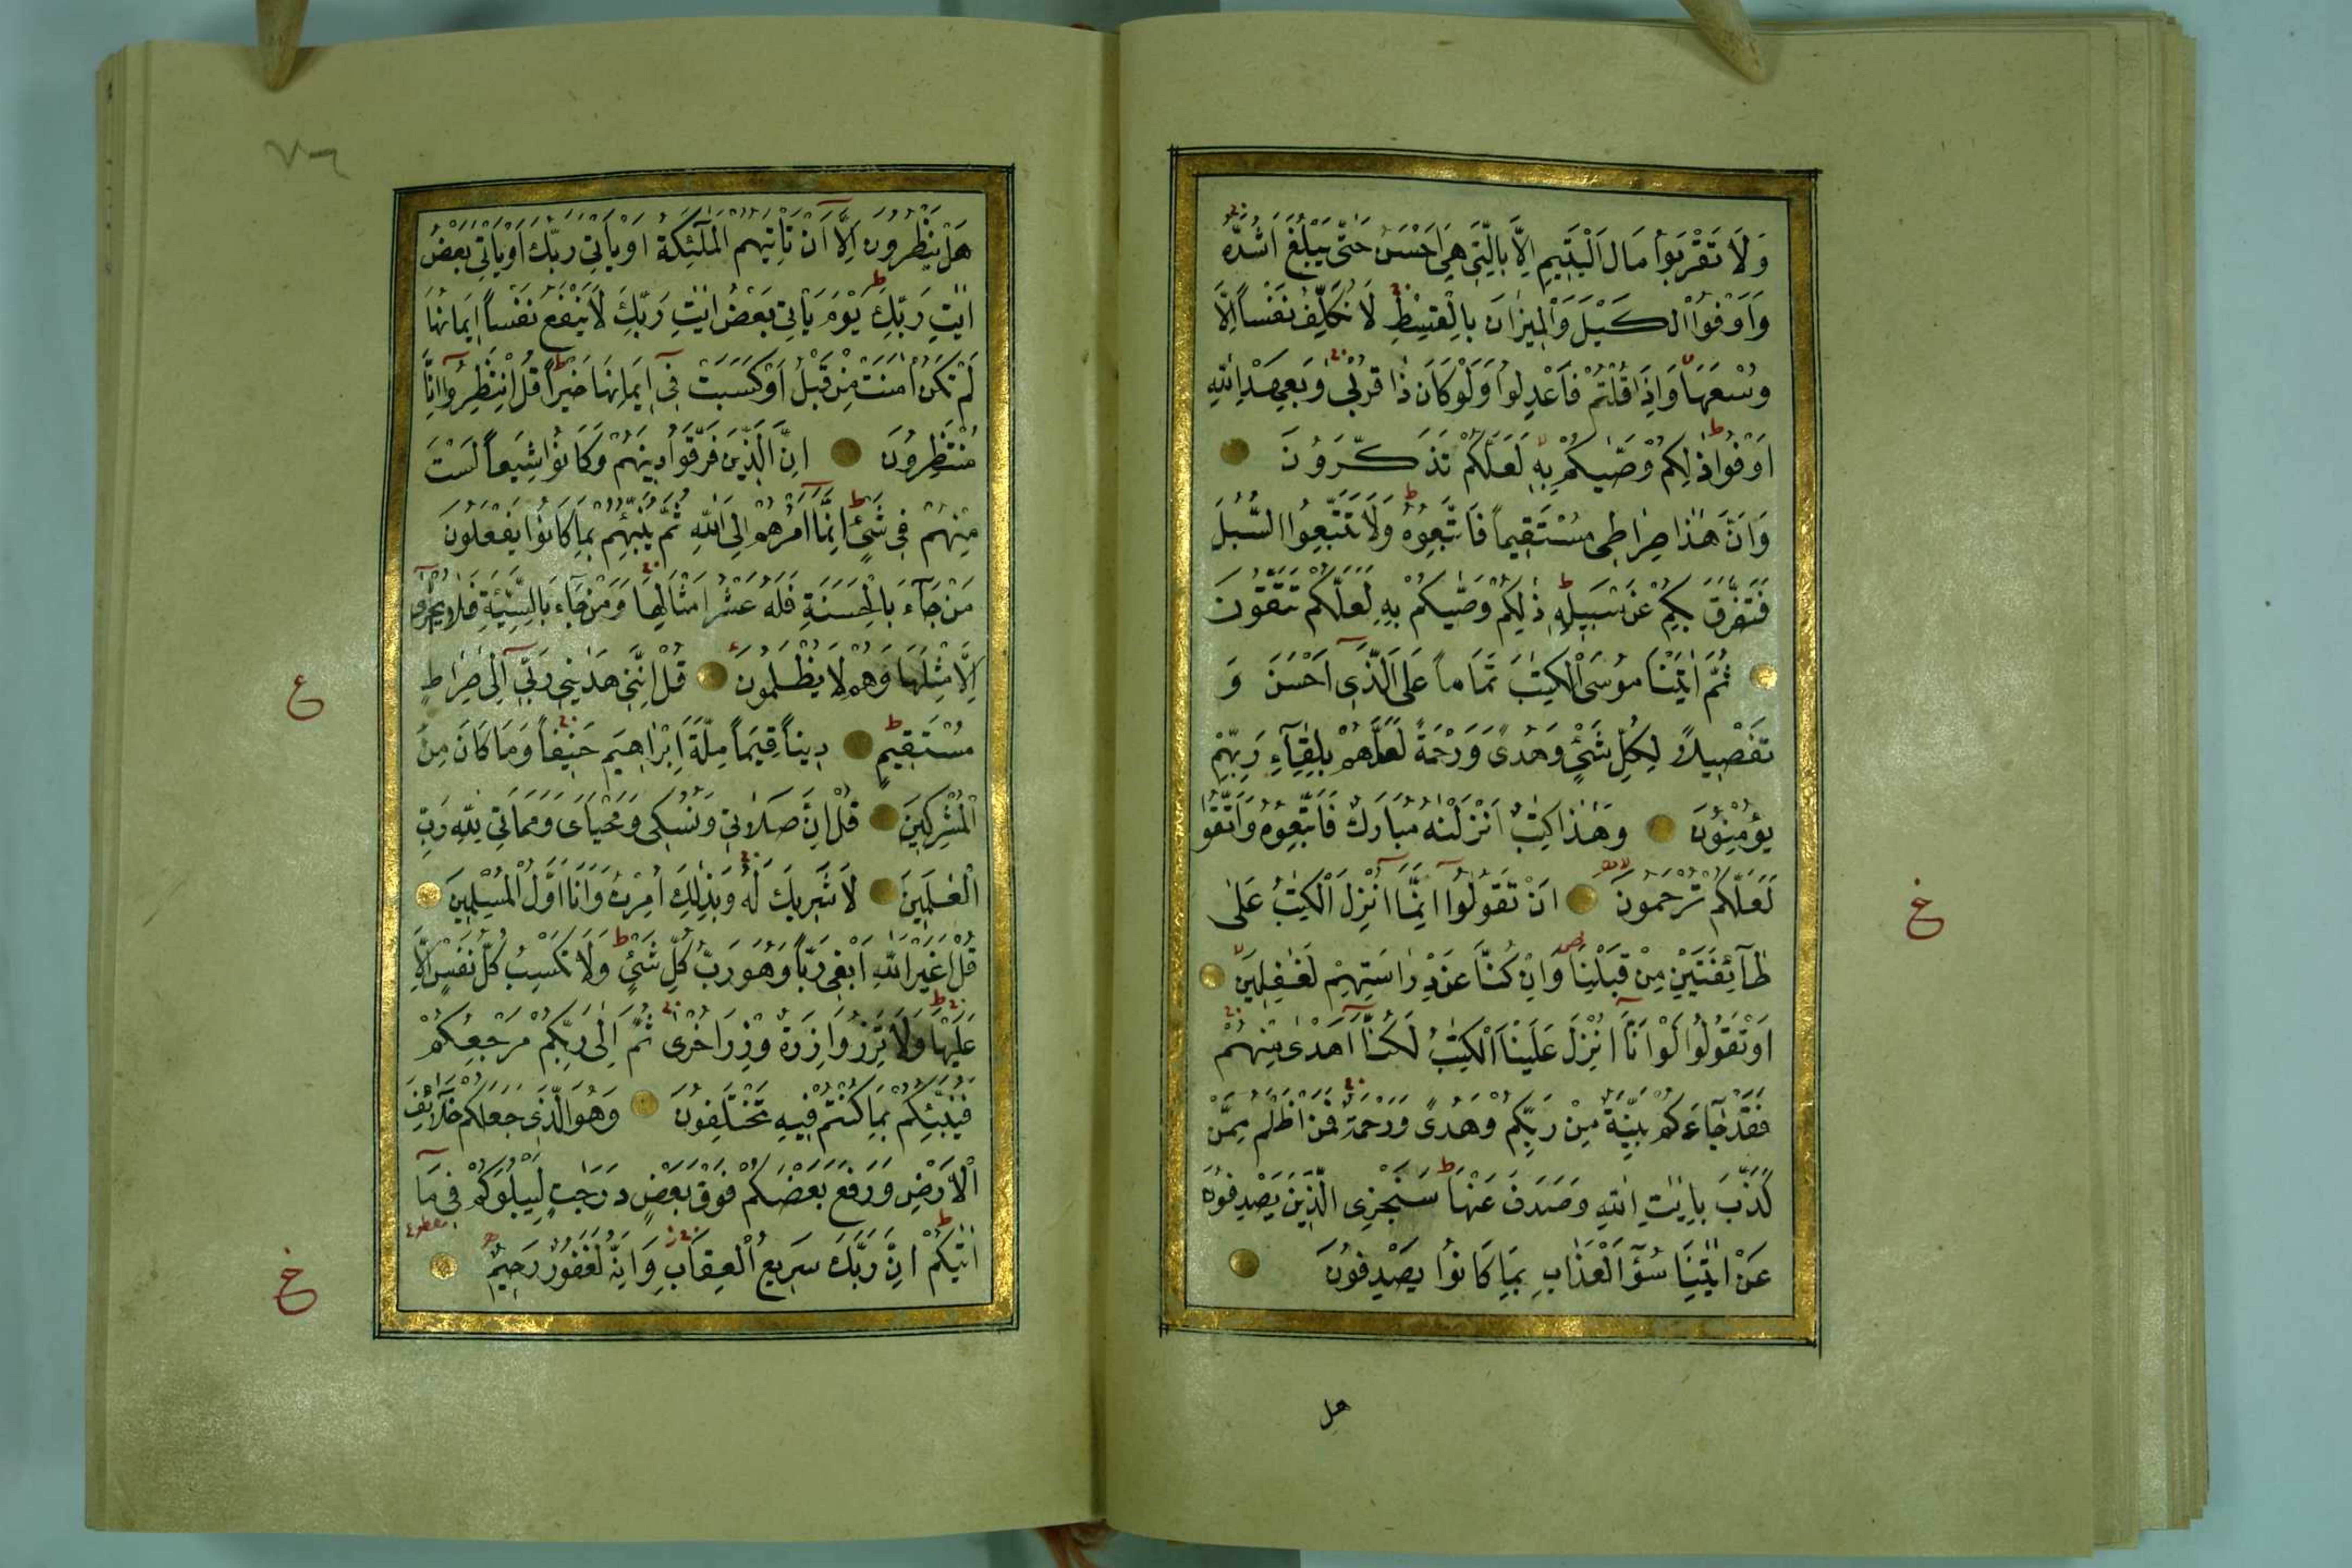 وَلَا تَقْرَبُوا مَالَ الْيَتِيمِ اِلَّا بِالَّتِي هِيَ اَحْسَنُ حَتّٰى يَبْلُغَ اَشُدَّهُ
وَاَوْفُوا الْكَيْلَ وَالْمِيزَانَ بِالْقِسْطِ لَا نُكَلِّفُ نَفْساً اِلَّا
وُسْعَهَا وَاِذَا قُلْتُمْ فَاعْدِلُوا وَلَوْ كَانَ ذَا قُرْبٰى وَبِعَهْدِ اللّٰهِ
اَوْفُوا ذٰلِكُمْ وَصّٰيكُمْ بِهِ لَعَلَّكُمْ تَذَكَّرُونَ
وَاَنَّ هٰذَا صِرَاطِي مُسْتَقِيماً فَاتَّبِعُوهُ وَلَا تَتَّبِعُوا السُّبُلَ
فَتَفَرَّقَ بِكُمْ عَنْ سَبِيلِهِ ذٰلِكُمْ وَصّٰيكُمْ بِهِ لَعَلَّكُمْ تَتَّقُونَ
ثُمَّ اٰتَيْنَا مُوسَى الْكِتٰبَ تَمَاماً عَلَى الَّذِي اَحْسَنَ وَ
تَفْصِيلاً لِكُلِّ شَيْءٍ وَهُدىً وَرَحْمَةً لَعَلَّهُمْ بِلِقَآءِ رَبِّهِمْ
يُؤْمِنُونَ وَهٰذَا كِتٰبٌ اَنْزَلْنٰهُ مُبَارَكٌ فَاتَّبِعُوهُ وَاتَّقُوا
لَعَلَّكُمْ تُرْحَمُونَ اَنْ تَقُولُوا اِنَّمَا اُنْزِلَ الْكِتٰبُ عَلٰى
طَآئِفَتَيْنِ مِنْ قَبْلِنَا وَاِنْ كُنَّا عَنْ دِرَاسَتِهِمْ لَغٰفِلِينَ
اَوْ تَقُولُوا لَوْ اَنَّا اُنْزِلَ عَلَيْنَا الْكِتٰبُ لَكُنَّا اَهْدٰى مِنْهُمْ
فَقَدْ جَآءَكُمْ بَيِّنَةٌ مِنْ رَبِّكُمْ وَهُدىً وَرَحْمَةٌ فَمَنْ اَظْلَمُ مِمَّنْ
كَذَّبَ بِاٰيٰتِ اللّٰهِ وَصَدَفَ عَنْهَا سَنَجْزِي الَّذِينَ يَصْدِفُونَ
عَنْ اٰيٰتِنَا سُوٓءَ الْعَذَابِ بِمَا كَانُوا يَصْدِفُونَ
هل
غ
٧٦
هَلْ يَنْظُرُونَ اِلَّا اَنْ تَاْتِيَهُمُ الْمَلٰٓئِكَةُ اَوْ يَاْتِيَ رَبُّكَ اَوْ يَاْتِيَ بَعْضُ
اٰيٰتِ رَبِّكَ يَوْمَ يَاْتِي بَعْضُ اٰيٰتِ رَبِّكَ لَا يَنْفَعُ نَفْساً اِيمَانُهَا
لَمْ تَكُنْ اٰمَنَتْ مِنْ قَبْلُ اَوْ كَسَبَتْ فِي اِيمَانِهَا خَيْراً قُلِ انْتَظِرُوا اِنَّا
مُنْتَظِرُونَ اِنَّ الَّذِينَ فَرَّقُوا دِينَهُمْ وَكَانُوا شِيَعاً لَسْتَ
مِنْهُمْ فِي شَيْءٍ اِنَّمَا اَمْرُهُمْ اِلَى اللّٰهِ ثُمَّ يُنَبِّئُهُمْ بِمَا كَانُوا يَفْعَلُونَ
مَنْ جَآءَ بِالْحَسَنَةِ فَلَهُ عَشْرُ اَمْثَالِهَا وَمَنْ جَآءَ بِالسَّيِّئَةِ فَلَا يُجْزٰى
اِلَّا مِثْلَهَا وَهُمْ لَا يُظْلَمُونَ قُلْ اِنَّنِي هَدٰينِي رَبِّي اِلٰى صِرَاطٍ
مُسْتَقِيمٍ دِيناً قِيَماً مِلَّةَ اِبْرَاهِيمَ حَنِيفاً وَمَا كَانَ مِنَ
الْمُشْرِكِينَ قُلْ اِنَّ صَلَاتِي وَنُسُكِي وَمَحْيَايَ وَمَمَاتِي لِلّٰهِ رَبِّ
الْعٰلَمِينَ لَا شَرِيكَ لَهُ وَبِذٰلِكَ اُمِرْتُ وَاَنَا اَوَّلُ الْمُسْلِمِينَ
قُلْ اَغَيْرَ اللّٰهِ اَبْغِي رَبّاً وَهُوَ رَبُّ كُلِّ شَيْءٍ وَلَا تَكْسِبُ كُلُّ نَفْسٍ اِلَّا
عَلَيْهَا وَلَا تَزِرُ وَازِرَةٌ وِزْرَ اُخْرٰى ثُمَّ اِلٰى رَبِّكُمْ مَرْجِعُكُمْ
فَيُنَبِّئُكُمْ بِمَا كُنْتُمْ فِيهِ تَخْتَلِفُونَ وَهُوَ الَّذِي جَعَلَكُمْ خَلَآئِفَ
الْاَرْضِ وَرَفَعَ بَعْضَكُمْ فَوْقَ بَعْضٍ دَرَجٰتٍ لِيَبْلُوَكُمْ فِي مَا
اٰتٰيكُمْ اِنَّ رَبَّكَ سَرِيعُ الْعِقَابِ وَاِنَّهُ لَغَفُورٌ رَحِيمٌ
ع